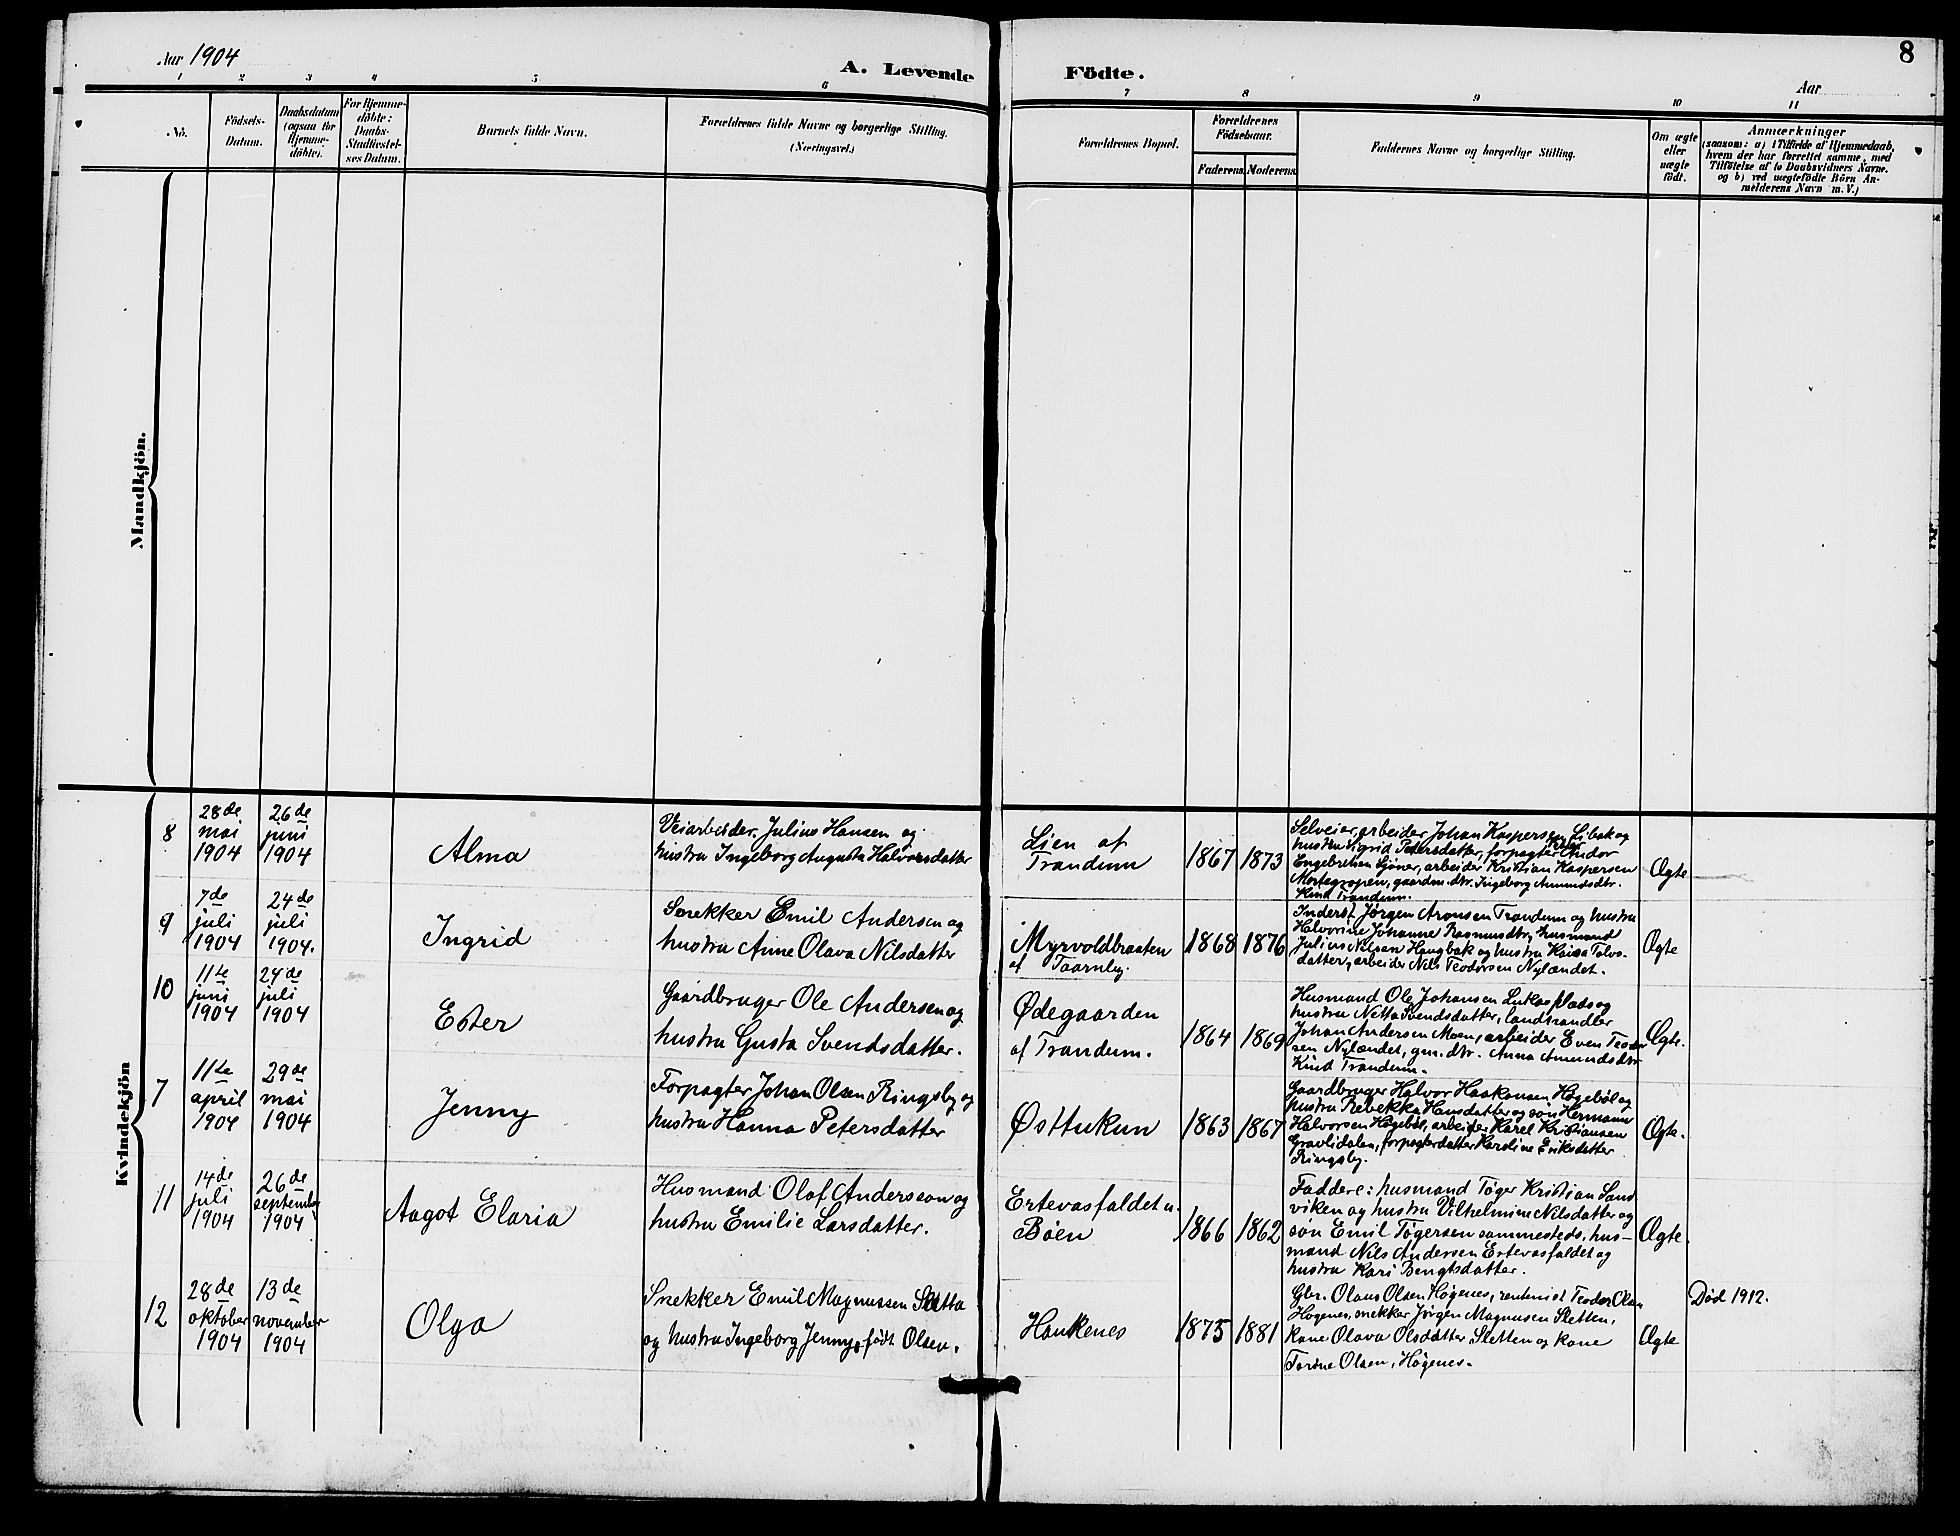 Aar 1904
A. Levende Födte.
Aar
8
1 2 3 4 5 6 7 8 9 10 11
No.
Födsels-
Datum.
Daabsdatum
(ogsaa for
Hjemme-
döbte).
For Hjemme-
döbte:
Daabs-
Stadfæstel-
ses Datum.
Barnets fulde Navn.
Forældrenes fulde Navne og borgerlige Stilling.
(Næringsvei.)
Forældrenes Bopæl.
Forældrenes
Födselsaar.
Faderens. Moderens.
Faddernes Navne og borgerlige Stilling.
Om ægte
eller
uægte
födt.
Anmærkninger
(saasom: a) i Tilfælde af Hjemmedaab,
hvem der har forrettet samme, med
Tilföielse af to Daabsvidners Navne.
og b) ved uægtefödte Börn An-
melderens Navn m. V.)
Mandkjön.
Kvindekjön
8
28de
mai
1904
26de
juni
1904
Alma
Veiarbeider Julius Hansen og
hustru Ingeborg Augusta Halvorsdatter
Lien af
Trandum
1867 1873
Selveier, arbeider Johan Kaspersen Libak og
hustru Sigrid Petersdatter, forpagter Andor
Engebretsen Sjöner, arbeider Kristian Kaspersen
Mortegropen, gaardm. dtr. Ingeborg Amundsdtr.
Kind Trandum.
Ægte
9
7de
juli
1904
24de
juli
1904.
Ingrid
Snekker Emil Andersen og
hustru Anne Olava Nilsdatter
Myrvoldbraaten
af Taarnby.
1868 1876
Inderst Jørgen Aronsen Trandum og hustru
Halvorine Johanne Rasmusdtr, husmand
Julius Nilsen Haugbak og hustru Kaisa Talvs-
datter, arbeider Nils Teodorsen Nylændet.
Ægte
10
11te
juni
1904
24de
juli
1904
Ester
Gaardbruger Ole Andersen og
hustru Gusta Svendsdatter.
Ødegaarden
af Trandum.
1864 1869
Husmand Ole Johansen Lukasplads og
hustru Netta Svendsdatter, landhandler
Johan Andersen Moen, arbeider Even Teodor
sen Nylændet, gm. dtr. Anna Amundsdtr
Kind Trandum.
Ægte.
7
11te
april
1904
29de
mai
1904
Jenny
Forpagter Johan Olsen Ringsby og
hustru Hanna Petersdatter
Østtukun
1863 1867
Gaardbruger Halvor Haakonsen Høgebøl og
hustru Rebekka Hansdatter og søn Hermann
Halvorsen Høgebøl, arbeider Karel Kristiansen
Gravlidalen, forpagterdatter Karoline Eriksdatter
Ringsby.
Ægte.
11
14de
juli
1904
26de
september
1904
Aagot Elaria
Husmand Olof Andersson og
hustru Emilie Larsdatter.
Ertevasfaldet u.
Böen
1866 1862
Faddere: husmand Töger Kristian Sand
viken og hustru Vilhelmine Nilsdatter og
søn Emil Tögersen sammesteds, hus-
mand Nils Andersen Ertevasfaldet og
hustru Kari Bengtsdatter.
Ægte.
12
28de
oktober
1904
13de
november
1904
Olga
Snekker Emil Magnussen Sletta
og hustru Ingeborg Jenny, født Olsen.
Haukenes
1875 1881
Gbr. Olaus Olsen Høgenes, rentenist Teodor Olsen
Høgenes, snekker Jørgen Magnusen Sletten,
kone Olava Olsdatter Sletten og kone
Torine Olsen, Høgenes.
Ægte
Död 1912.